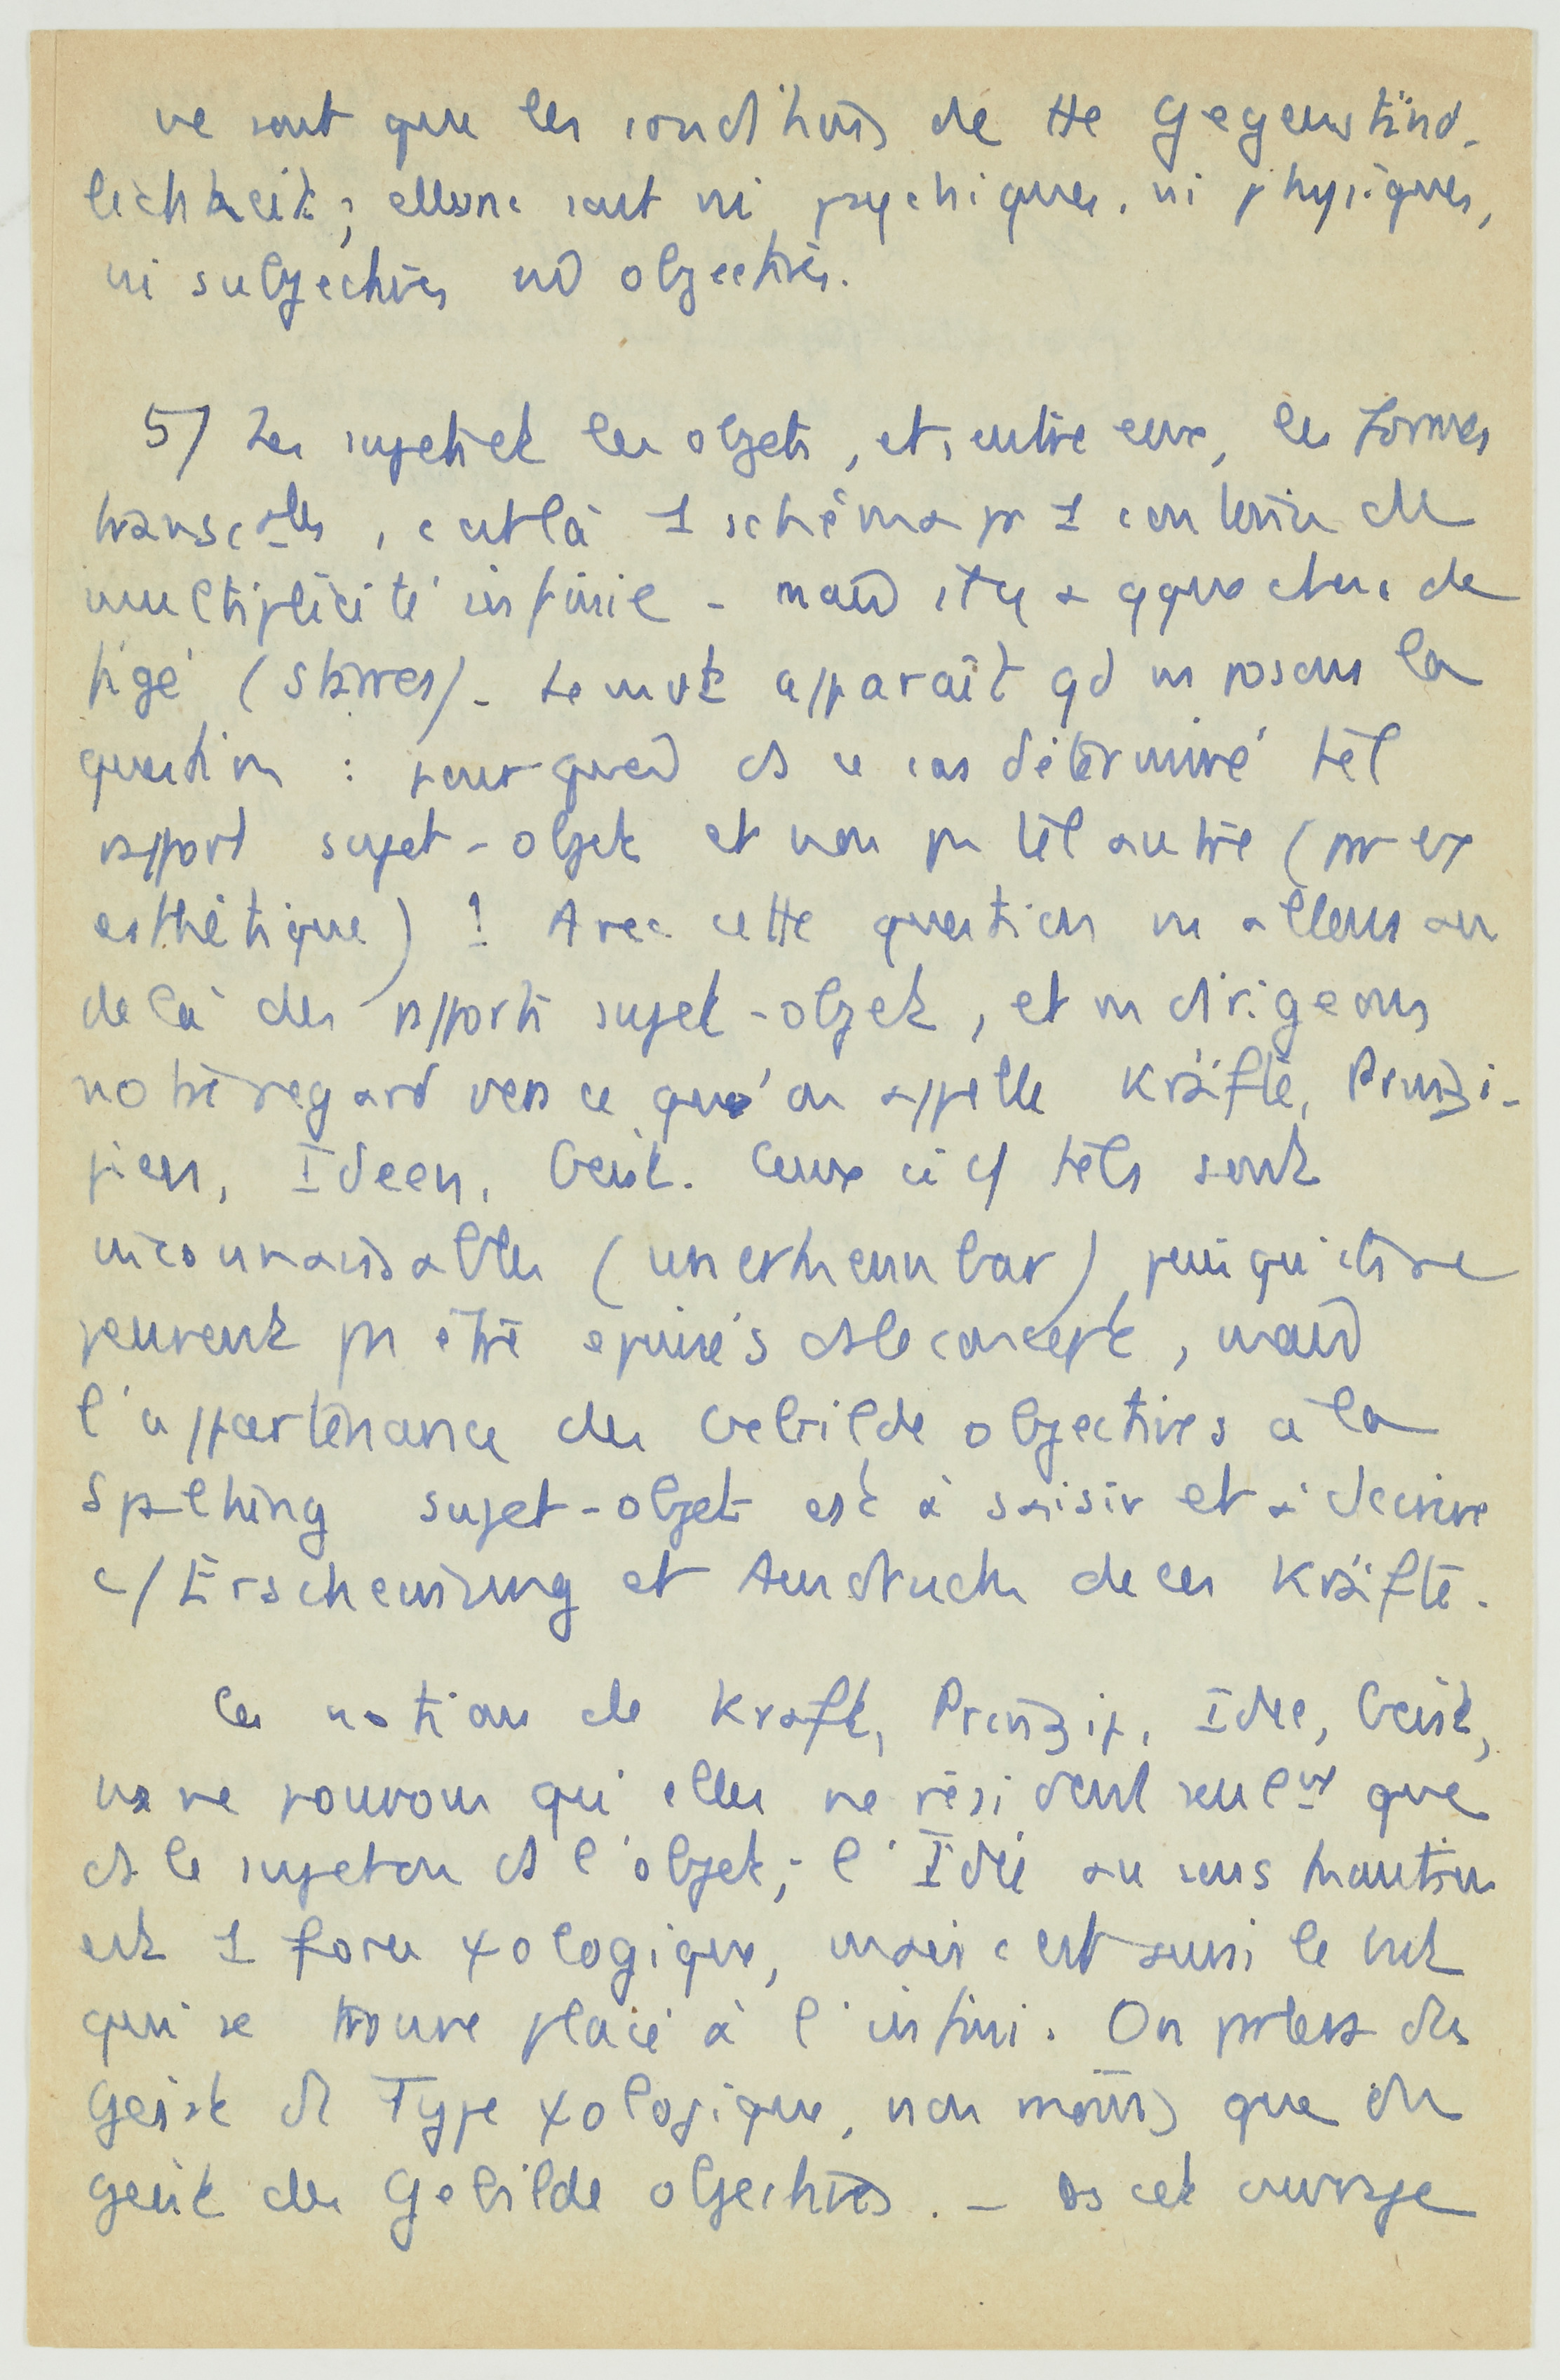 ne sont que les conditions de tte Gegenständ-
lichkeit ; elles ne sont ni psychiques, ni physiques,
ni subjectives ni objectives.
5) Les sujets et les objets, et, entre eux, les formes
transcales, c'est là 1 schéma pr 1 contenu de
multiplicité infinie - mais il y a qque chose de
figé (starres). Le mot apparaît qd ns posons la
question : pourquoi ds ce cas déterminé tel
rapport sujet-objet et non ps tel autre (par ex
esthétique) ! Avec cette question ns allons au
delà des rapports sujet-objet, et ns dirigeons
notre regard vers ce qu'on appelle Kräfte, Prinzi-
pien, Ideen, Geist. Ceux ci c/ tels sont
inconnaissables (unerkennbar) puisqu'ils ne
peuvent ps être épuisés ds le concept, mais
l'appartenance des Gebilde objectives à la
Spaltung sujet-objet est à saisir et à décrire
c/ Erscheinung et Ausdruck de ces Kräfte.
Ces notions de Kraft, Prinzip, Idee, Geist,
ns ne pouvons qu'elles ne résident seult que
ds le sujet ou ds l'objet ; l'Idée au sens kantien
est 1 force xologique, mais c'est aussi le but
qui se trouve placé à l'infini. On parlera des
Geist de Type xologique, non moins que du
Geist des Gebilde objectives. - Ds cet ouvrage